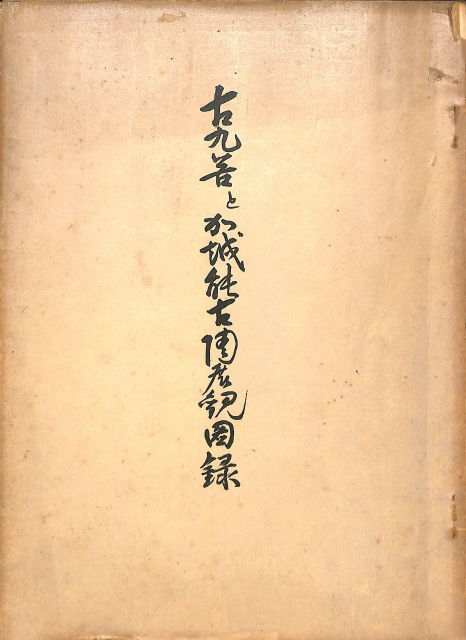 古九谷と加越能古陶展観図録